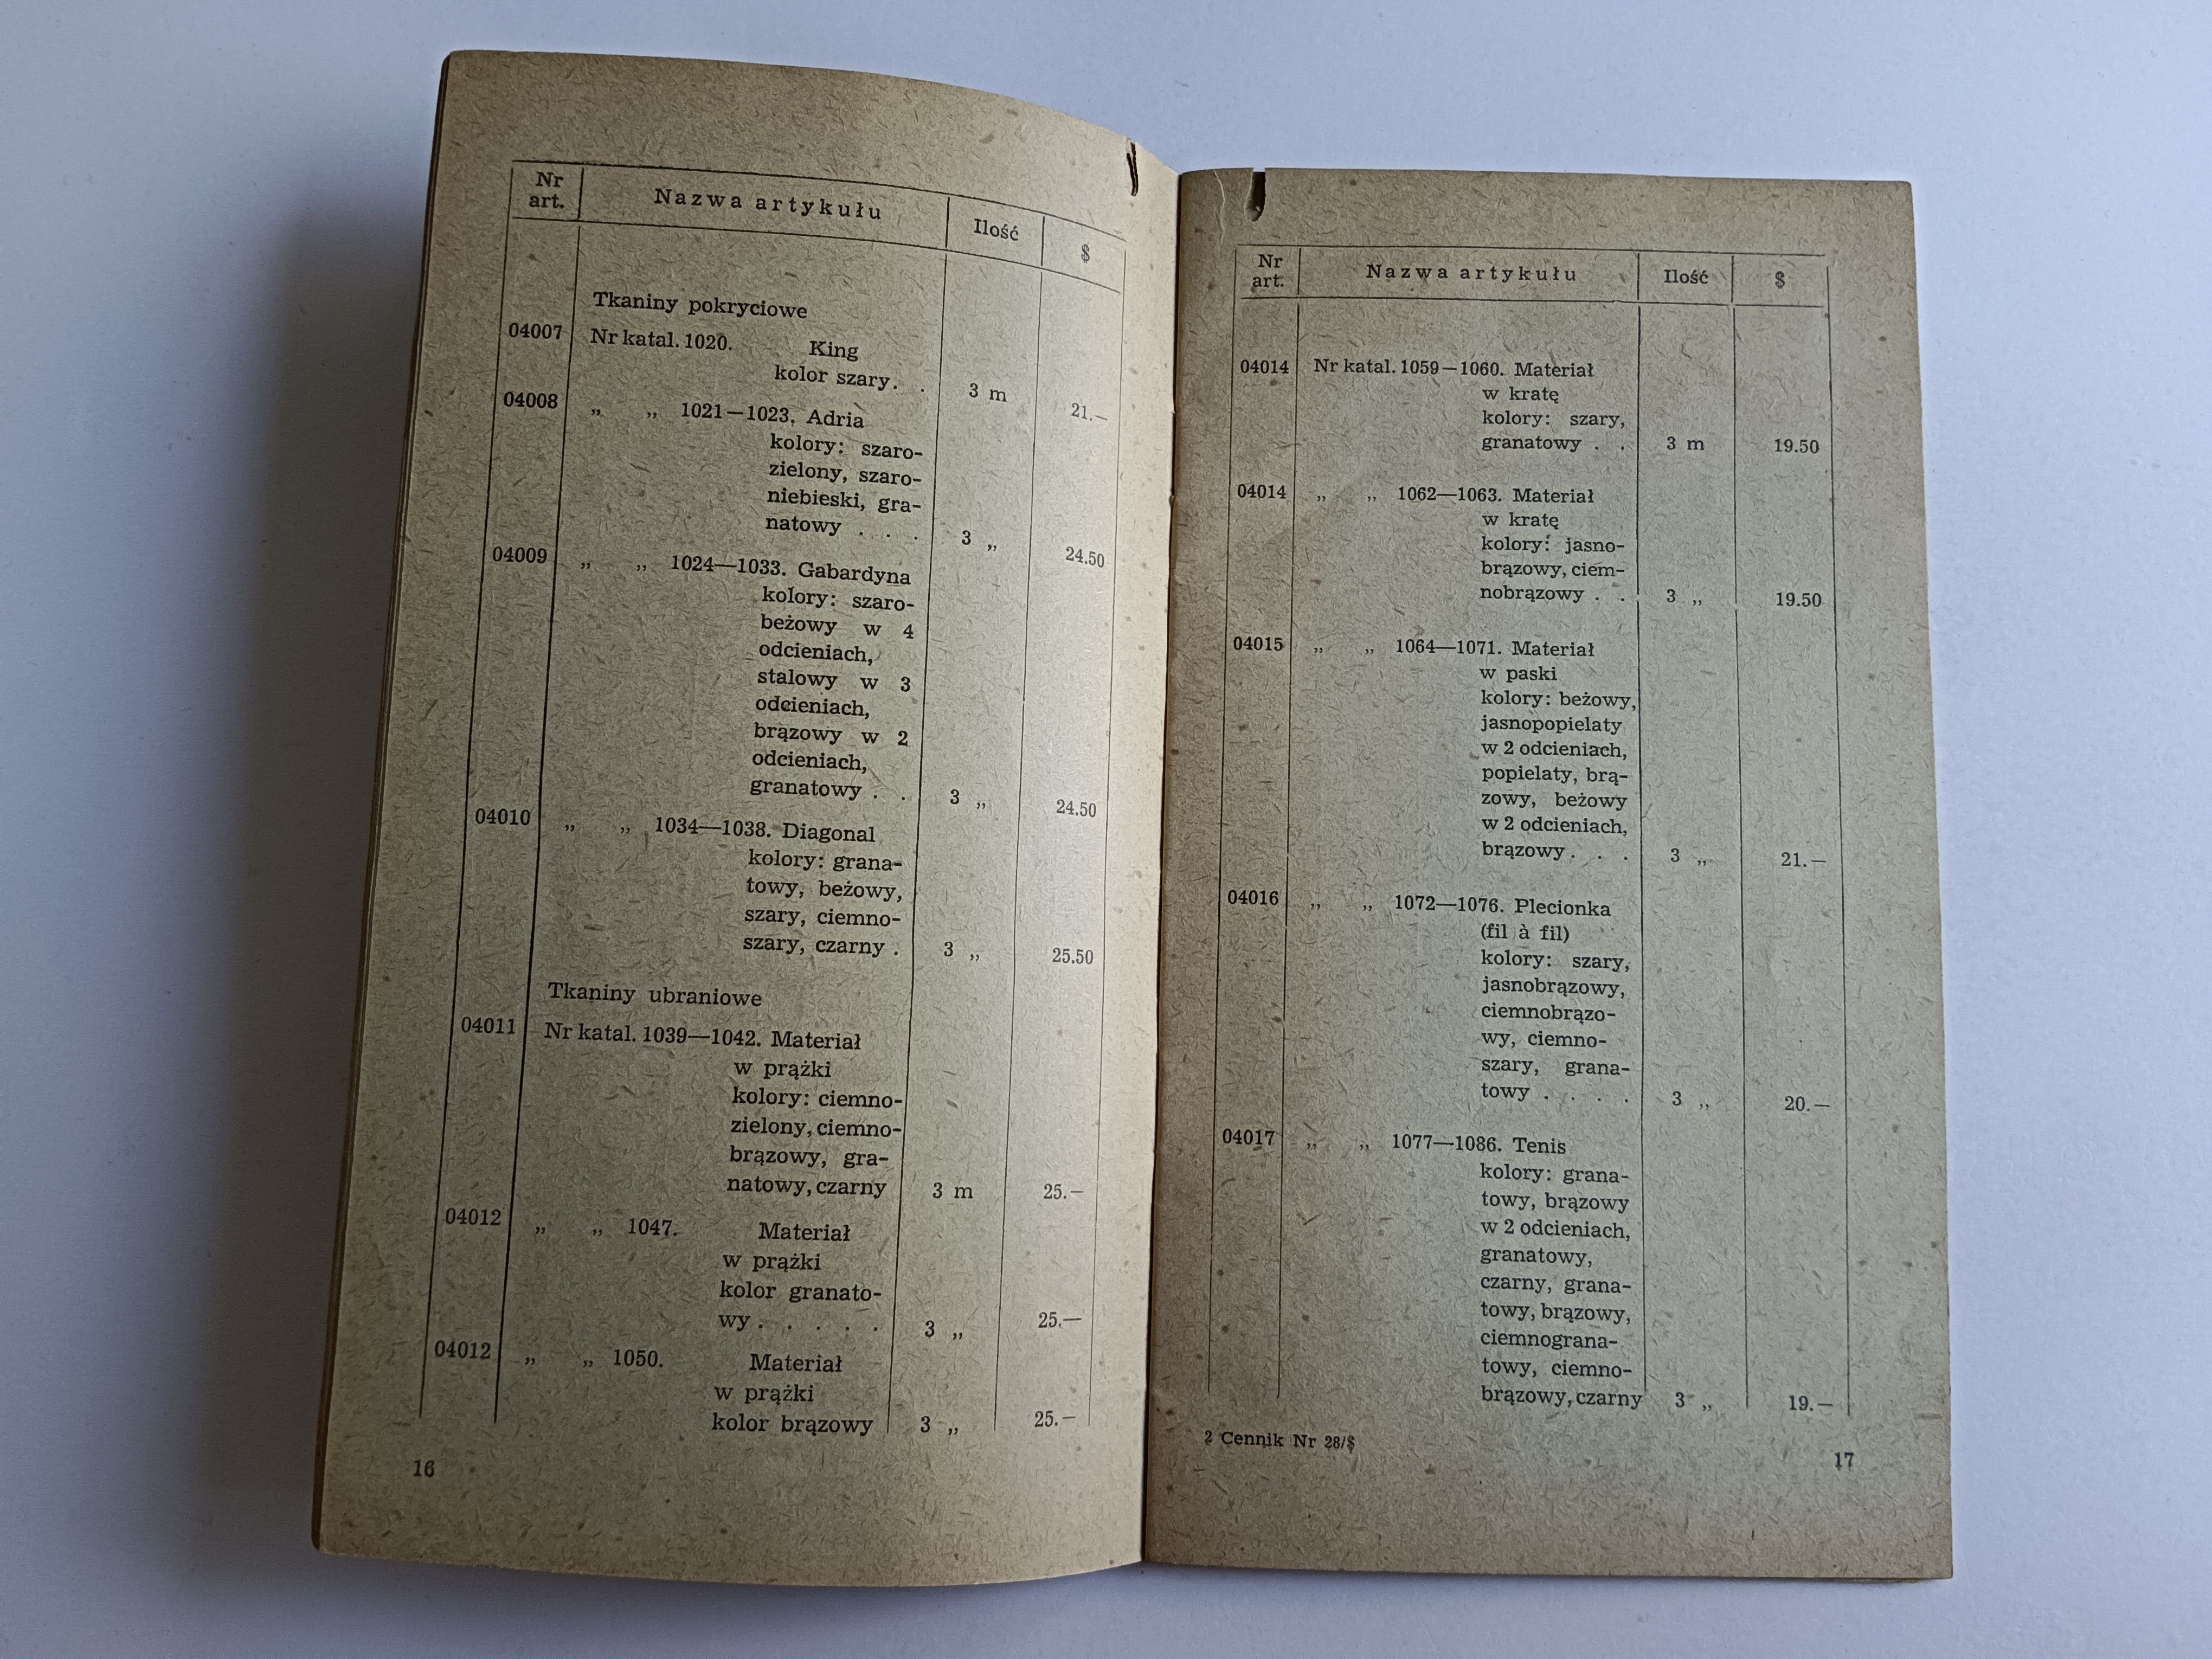 Nr art. Nazwa artykułu Ilość $
Tkaniny pokryciowe
04007 Nr katal. 1020. King
kolor szary . . 3 m 21.—
04008 „ „ 1021—1023. Adria
kolory: szaro-
zielony, szaro-
niebieski, gra-
natowy . . . 3 „ 24.50
04009 „ „ 1024—1033. Gabardyna
kolory: szaro-
beżowy w 4
odcieniach,
stalowy w 3
odcieniach,
brązowy w 2
odcieniach,
granatowy . . 3 „ 24.50
04010 „ „ 1034—1038. Diagonal
kolory: grana-
towy, beżowy,
szary, ciemno-
szary, czarny . 3 „ 25.50
Tkaniny ubraniowe
04011 Nr katal. 1039—1042. Materiał
w prążki
kolory: ciemno-
zielony, ciemno-
brązowy, gra-
natowy, czarny 3 m 25.—
04012 „ „ 1047. Materiał
w prążki
kolor granato-
wy . . . . . 3 „ 25.—
04012 „ „ 1050. Materiał
w prążki
kolor brązowy 3 „ 25.—
16
Nr art. Nazwa artykułu Ilość $
04014 Nr katal. 1059—1060. Materiał
w kratę
kolory: szary,
granatowy . . 3 m 19.50
04014 „ „ 1062—1063. Materiał
w kratę
kolory: jasno-
brązowy, ciem-
nobrązowy . . 3 „ 19.50
04015 „ „ 1064—1071. Materiał
w paski
kolory: beżowy,
jasnopopielaty
w 2 odcieniach,
popielaty, brą-
zowy, beżowy
w 2 odcieniach,
brązowy . . . 3 „ 21.—
04016 „ „ 1072—1076. Plecionka
(fil à fil)
kolory: szary,
jasnobrązowy,
ciemnobrązo-
wy, ciemno-
szary, grana-
towy . . . . 3 „ 20.—
04017 „ „ 1077—1086. Tenis
kolory: grana-
towy, brązowy
w 2 odcieniach,
granatowy,
czarny, grana-
towy, brązowy,
ciemnograna-
towy, ciemno-
brązowy, czarny 3 „ 19.—
2 Cennik Nr 28/$
17